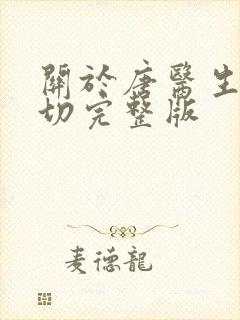 關於唐醫生
切完整版
麦德龍